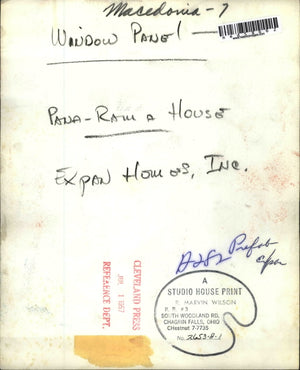 Macedonia - 7
Window Panel -
Pana-Rama House
Expan Homes, Inc.
A282 Prefab
CLEVELAND PRESS
1 1957
REFERENCE DEPT.
A
STUDIO HOUSE PRINT
MARVIN WILSON
R. R. #3
SOUTH WOODLAND RD.
CHAGRIN FALLS, OHIO
CHestnut 7-7735
No. 2653-8-1